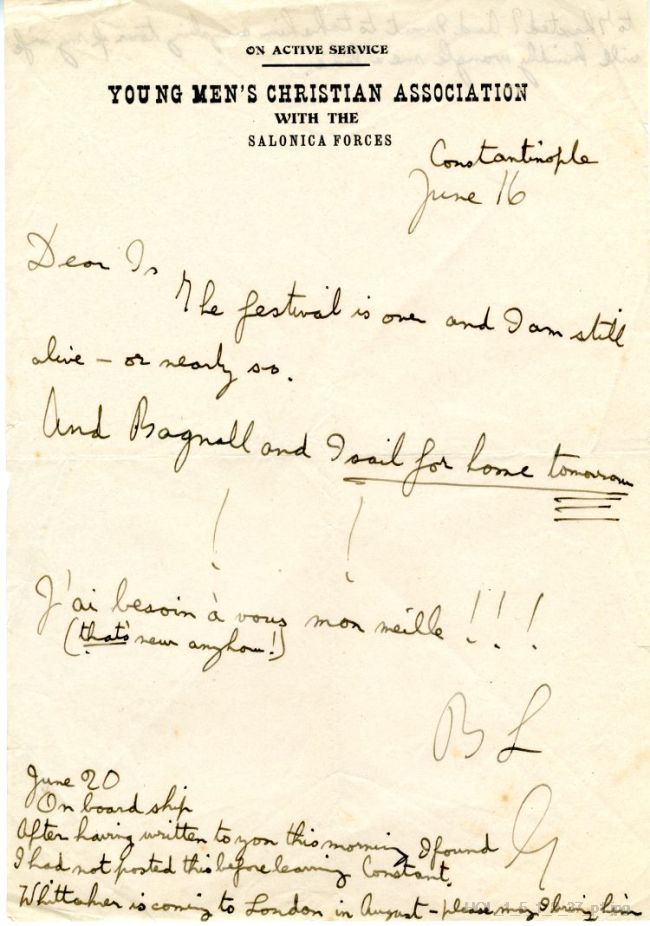 ON ACTIVE SERVICE
YOUNG MEN'S CHRISTIAN ASSOCIATION
WITH THE
SALONICA FORCES
Constantinople
June 16
Dear Is
The festival is over and I am still
alive – or nearly so.
And Bagnall and I sail for home tomorrow
! !
J'ai besoin à vous mon meille !!!
(that's new anyhow!)
B L
G
June 20
On board ship
After having written to you this morning I found
I had not posted this before leaving Constant.
Whittaker is coming to London in August – please may I bring him